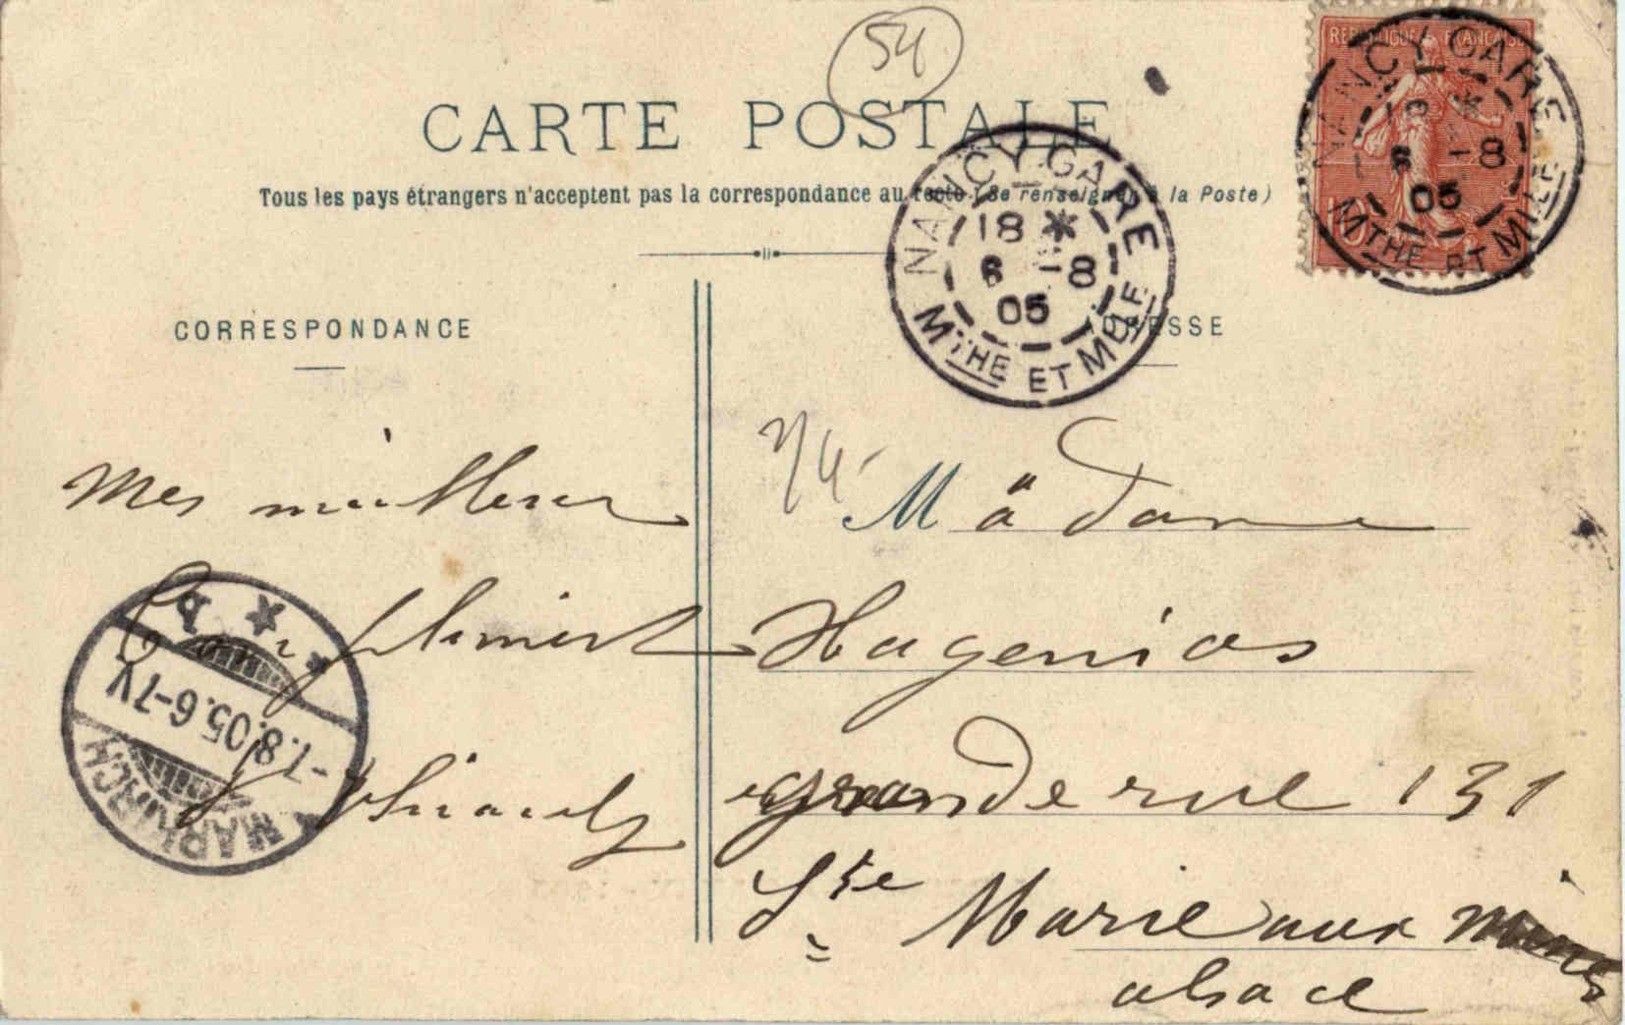 54
CARTE POSTALE
Tous les pays étrangers n'acceptent pas la correspondance au recto (Se renseigner à la Poste)
REPUBLIQUE FRANÇAISE
10
NANCY GARE
18 *
6 -8
05
MTHE ET MLLE
NANCY GARE
18 *
6 -8
05
MTHE ET MLLE
CORRESPONDANCE
ADRESSE
Mes meilleur
Compliment
MARKIRCH
* b *
-7.8.05.6-7V
Madame
Hugenios
grande rue 131
Ste Marie aux mines
alsace